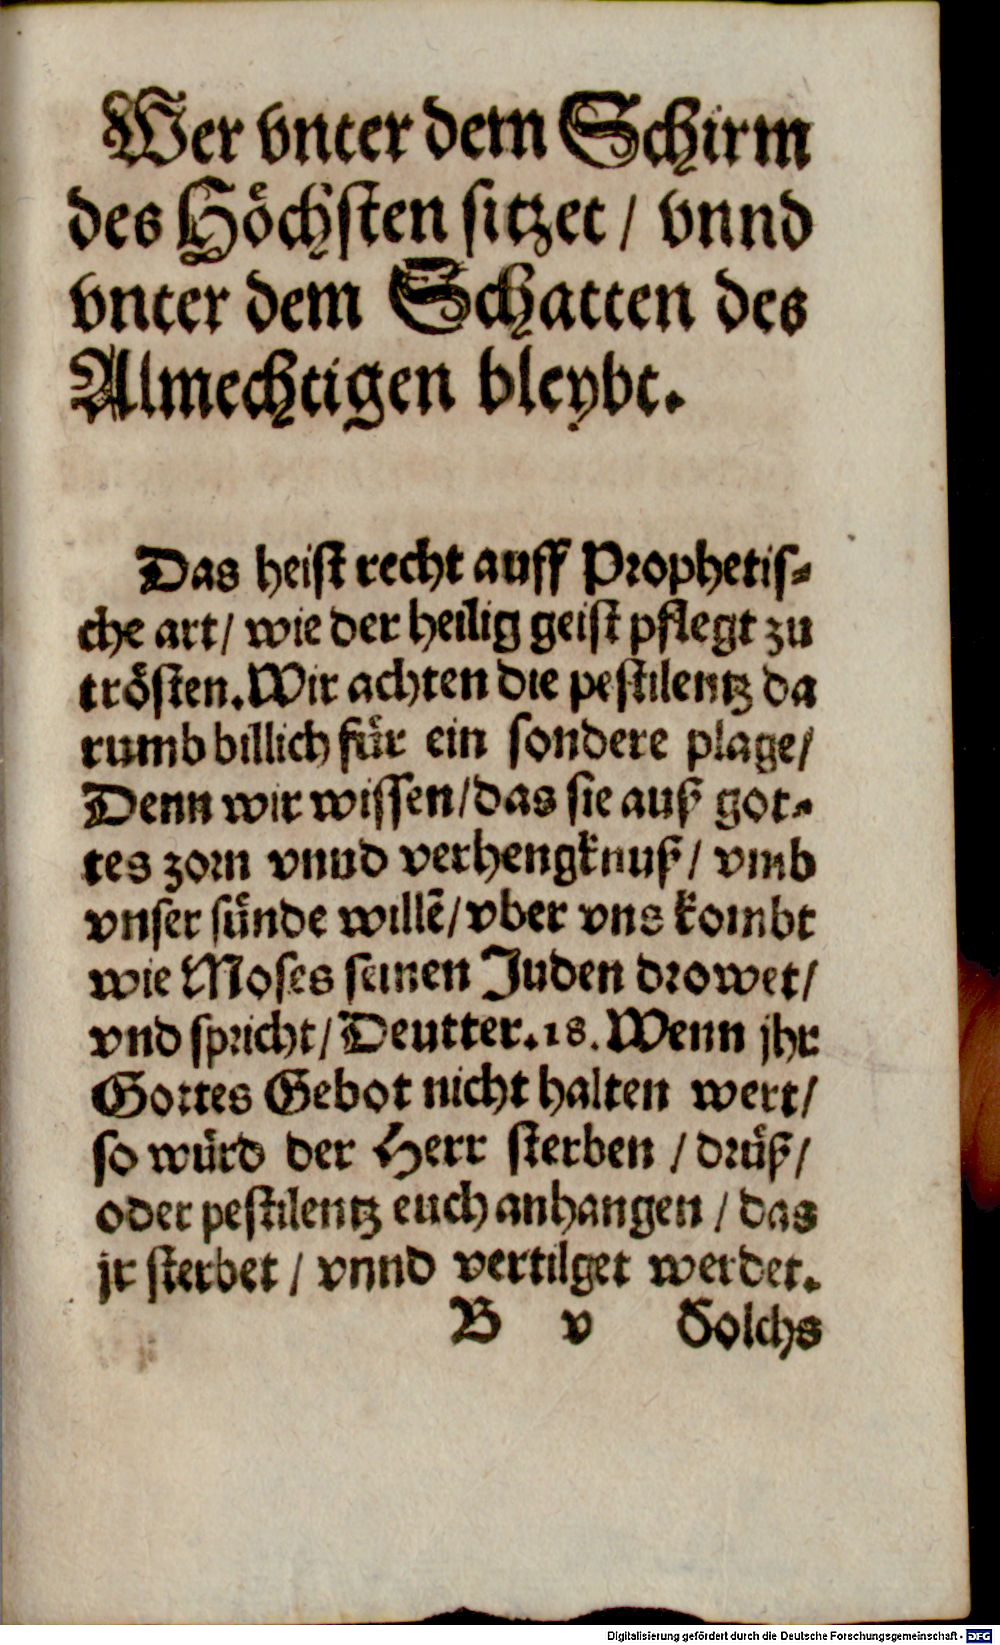 Wer vnter dem Schirm
des Höchsten sitzet / vnnd
vnter dem Schatten des
Almechtigen bleybt.
Das heist recht auff Prophetis-
che art / wie der heilig geist pflegt zu
trösten. Wir achten die pestilentz da
rumb billich für ein sondere plage /
Denn wir wissen / das sie auß got-
tes zorn vnnd verhengknuß / vmb
vnser sünde willē / vber vns kombt
wie Moses seinen Juden drowet /
vnd spricht / Deutter. 18. Wenn jhr
Gottes Gebot nicht halten wert /
so würd der Herr sterben / drüß /
oder pestilentz euch anhangen / das
jr sterbet / vnnd vertilget werdet.
B v Solchs
Digitalisierung gefördert durch die Deutsche Forschungsgemeinschaft - DFG